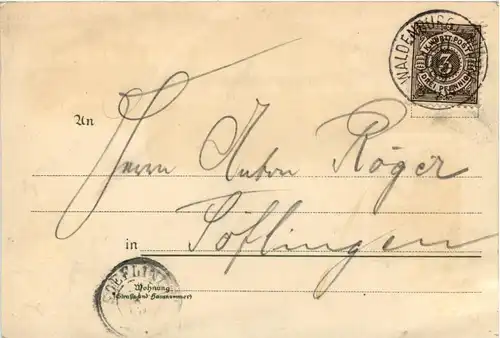 WALDENBURG
3
DREI PFENNIG
An
Herrn Anton Röger
in Söflingen
SOEFLIN
Wohnung
(Straße und Hausnummer)